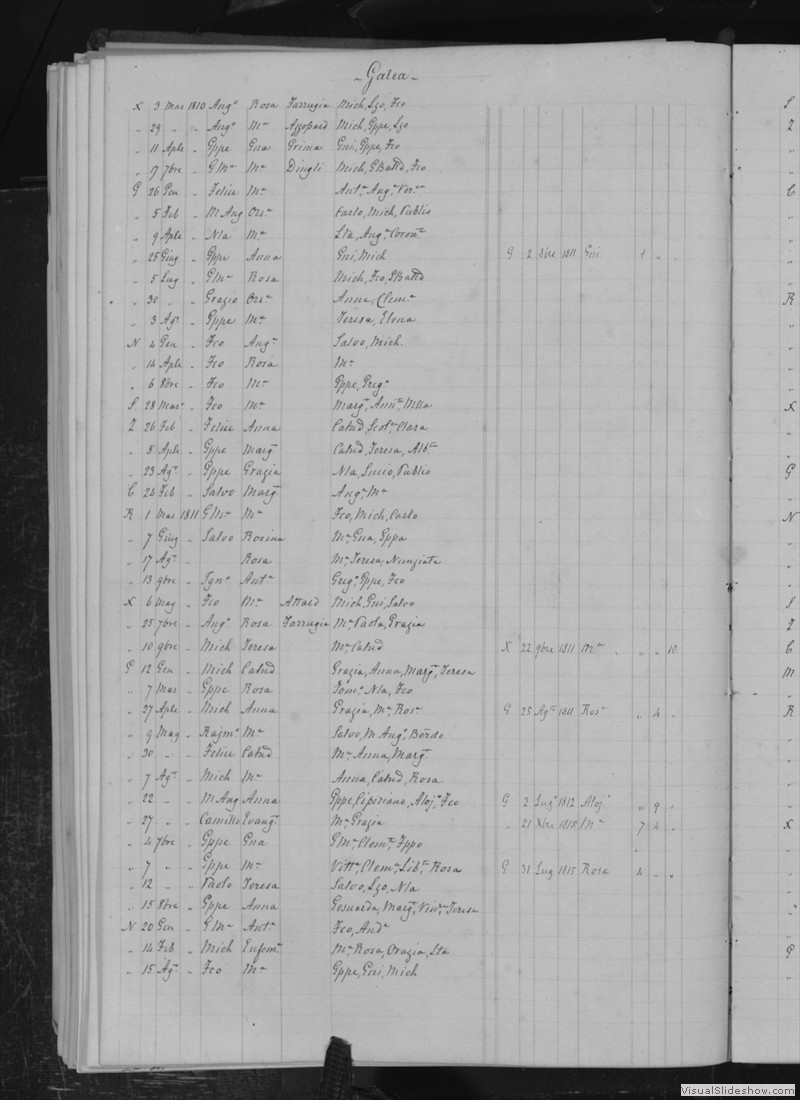 Galea
X 3 Mar 1810 Angᵒ Rosa Farrugia Mich, Lzo, Fco
„ 29 „ „ Angᵒ Mᵃ Azzopard Mich, Gppe, Lzo
„ 11 Aple „ Gppe Gna Grima Gni, Gppe, Fco
„ 17 7bre „ GMᵃ Mᵃ Dingli Mich, GBattᵃ, Fco
G 26 Gen „ Felice Mᵃ Antᵒ, Angᵒ
„ 5 Feb „ M Ang Orsᵃ Carlo, Mich, Publio
„ 9 Aple „ Nla Mᵃ Lta, Angᵃ, Coronᵃ
„ 25 Giug „ Gppe Anna Gni, Mich G 2 8bre 1811 Gni 1 „ „
„ 5 Lug „ GMᵃ Rosa Mich, Fco, GBattᵃ
„ 30 „ „ Grazio Orsᵃ Anna, Clemᵃ
„ 3 Agᵒ „ Gppe Mᵃ Teresa, Elena
N 4 Gen „ Fco Angᵃ Salvo, Mich.
„ 14 Aple „ Fco Rosa Mᵃ
„ 6 8bre „ Fco Mᵃ Gppe, Gregᵒ
S 28 Mar „ Fco Mᵃ Margᵗ, Annᵃ, Mlla
Z 26 Feb „ Felice Anna Catnd, Scolᵃ, Clara
„ 5 Aple „ Gppe Margᵗ Catnd, Teresa, Albᵃ
„ 23 Agᵒ „ Gppe Grazia Nla, Lucio, Publio
C 24 Feb „ Salvo Margᵗ Angᵃ, Mᵃ
R 1 Mar 1811 GMᵃ Mᵃ Fco, Mich, Carlo
„ 7 Giug „ Salvo Rosina Mᵃ, Gna, Gppa
„ 17 Agᵒ „ Rosa Mᵃ, Teresa, Nunziata
„ 13 9bre „ Ignᵒ Antᵃ Gregᵒ, Gppe, Fco
X 6 Mag „ Fco Mᵃ Attard Mich, Gni, Salvo
„ 25 7bre „ Angᵒ Rosa Farrugia Mᵃ, Paola, Grazia
„ 10 9bre „ Mich Teresa Mᵃ, Catnd X 22 9bre 1811 Mᵃ „ „ 10
G 12 Gen „ Mich Catnd Grazia, Anna, Margᵗ, Teresa
„ 7 Mar „ Gppe Rosa Domᵒ, Nla, Fco
„ 27 Aple „ Mich Anna Grazia, Mᵃ, Rosᵃ G 25 Agᵒ 1811 Rosᵃ „ 4 „
„ 9 Mag „ Rajmᵒ Mᵃ Salvo, M Angᵒ, Bördo
„ 30 „ „ Felice Catnd Mᵃ, Anna, Margᵗ
„ 7 Agᵒ „ Mich Mᵃ Anna, Catnd, Rosa
„ 22 „ „ M Ang Anna Gppe, Cipiriano, Alojᵒ, Fco G 2 Lugᵒ 1812 Alojᵒ „ 9 „
„ 27 „ „ Camillo Evangᵗ Mᵃ, Grazia „ 21 Xbre 1818 Mᵃ 7 4 „
„ 4 7bre „ Gppe Gna GMᵃ, Clemᵗ, Fppo
„ 7 „ „ Gppe Mᵃ Vittᵃ, Clemᵃ, Libᵃ, Rosa G 31 Lug 1815 Rosa 4 „ „
„ 12 „ „ Paolo Teresa Salvo, Lzo, Nla
„ 15 8bre „ Gppe Anna Gesuarda, Margᵗ, Teresa
N 20 Gen „ GMᵃ Antᵃ Fco, Andᵃ
„ 14 Feb „ Mich Eufemᵃ Mᵃ, Rosa, Orazia, Lta
„ 15 Agᵒ „ Fco Mᵃ Gppe, Gni, Mich
S
Z
C
R
X
G
N
S
Z
C
M
R
X
G
VisualSlideshow.com